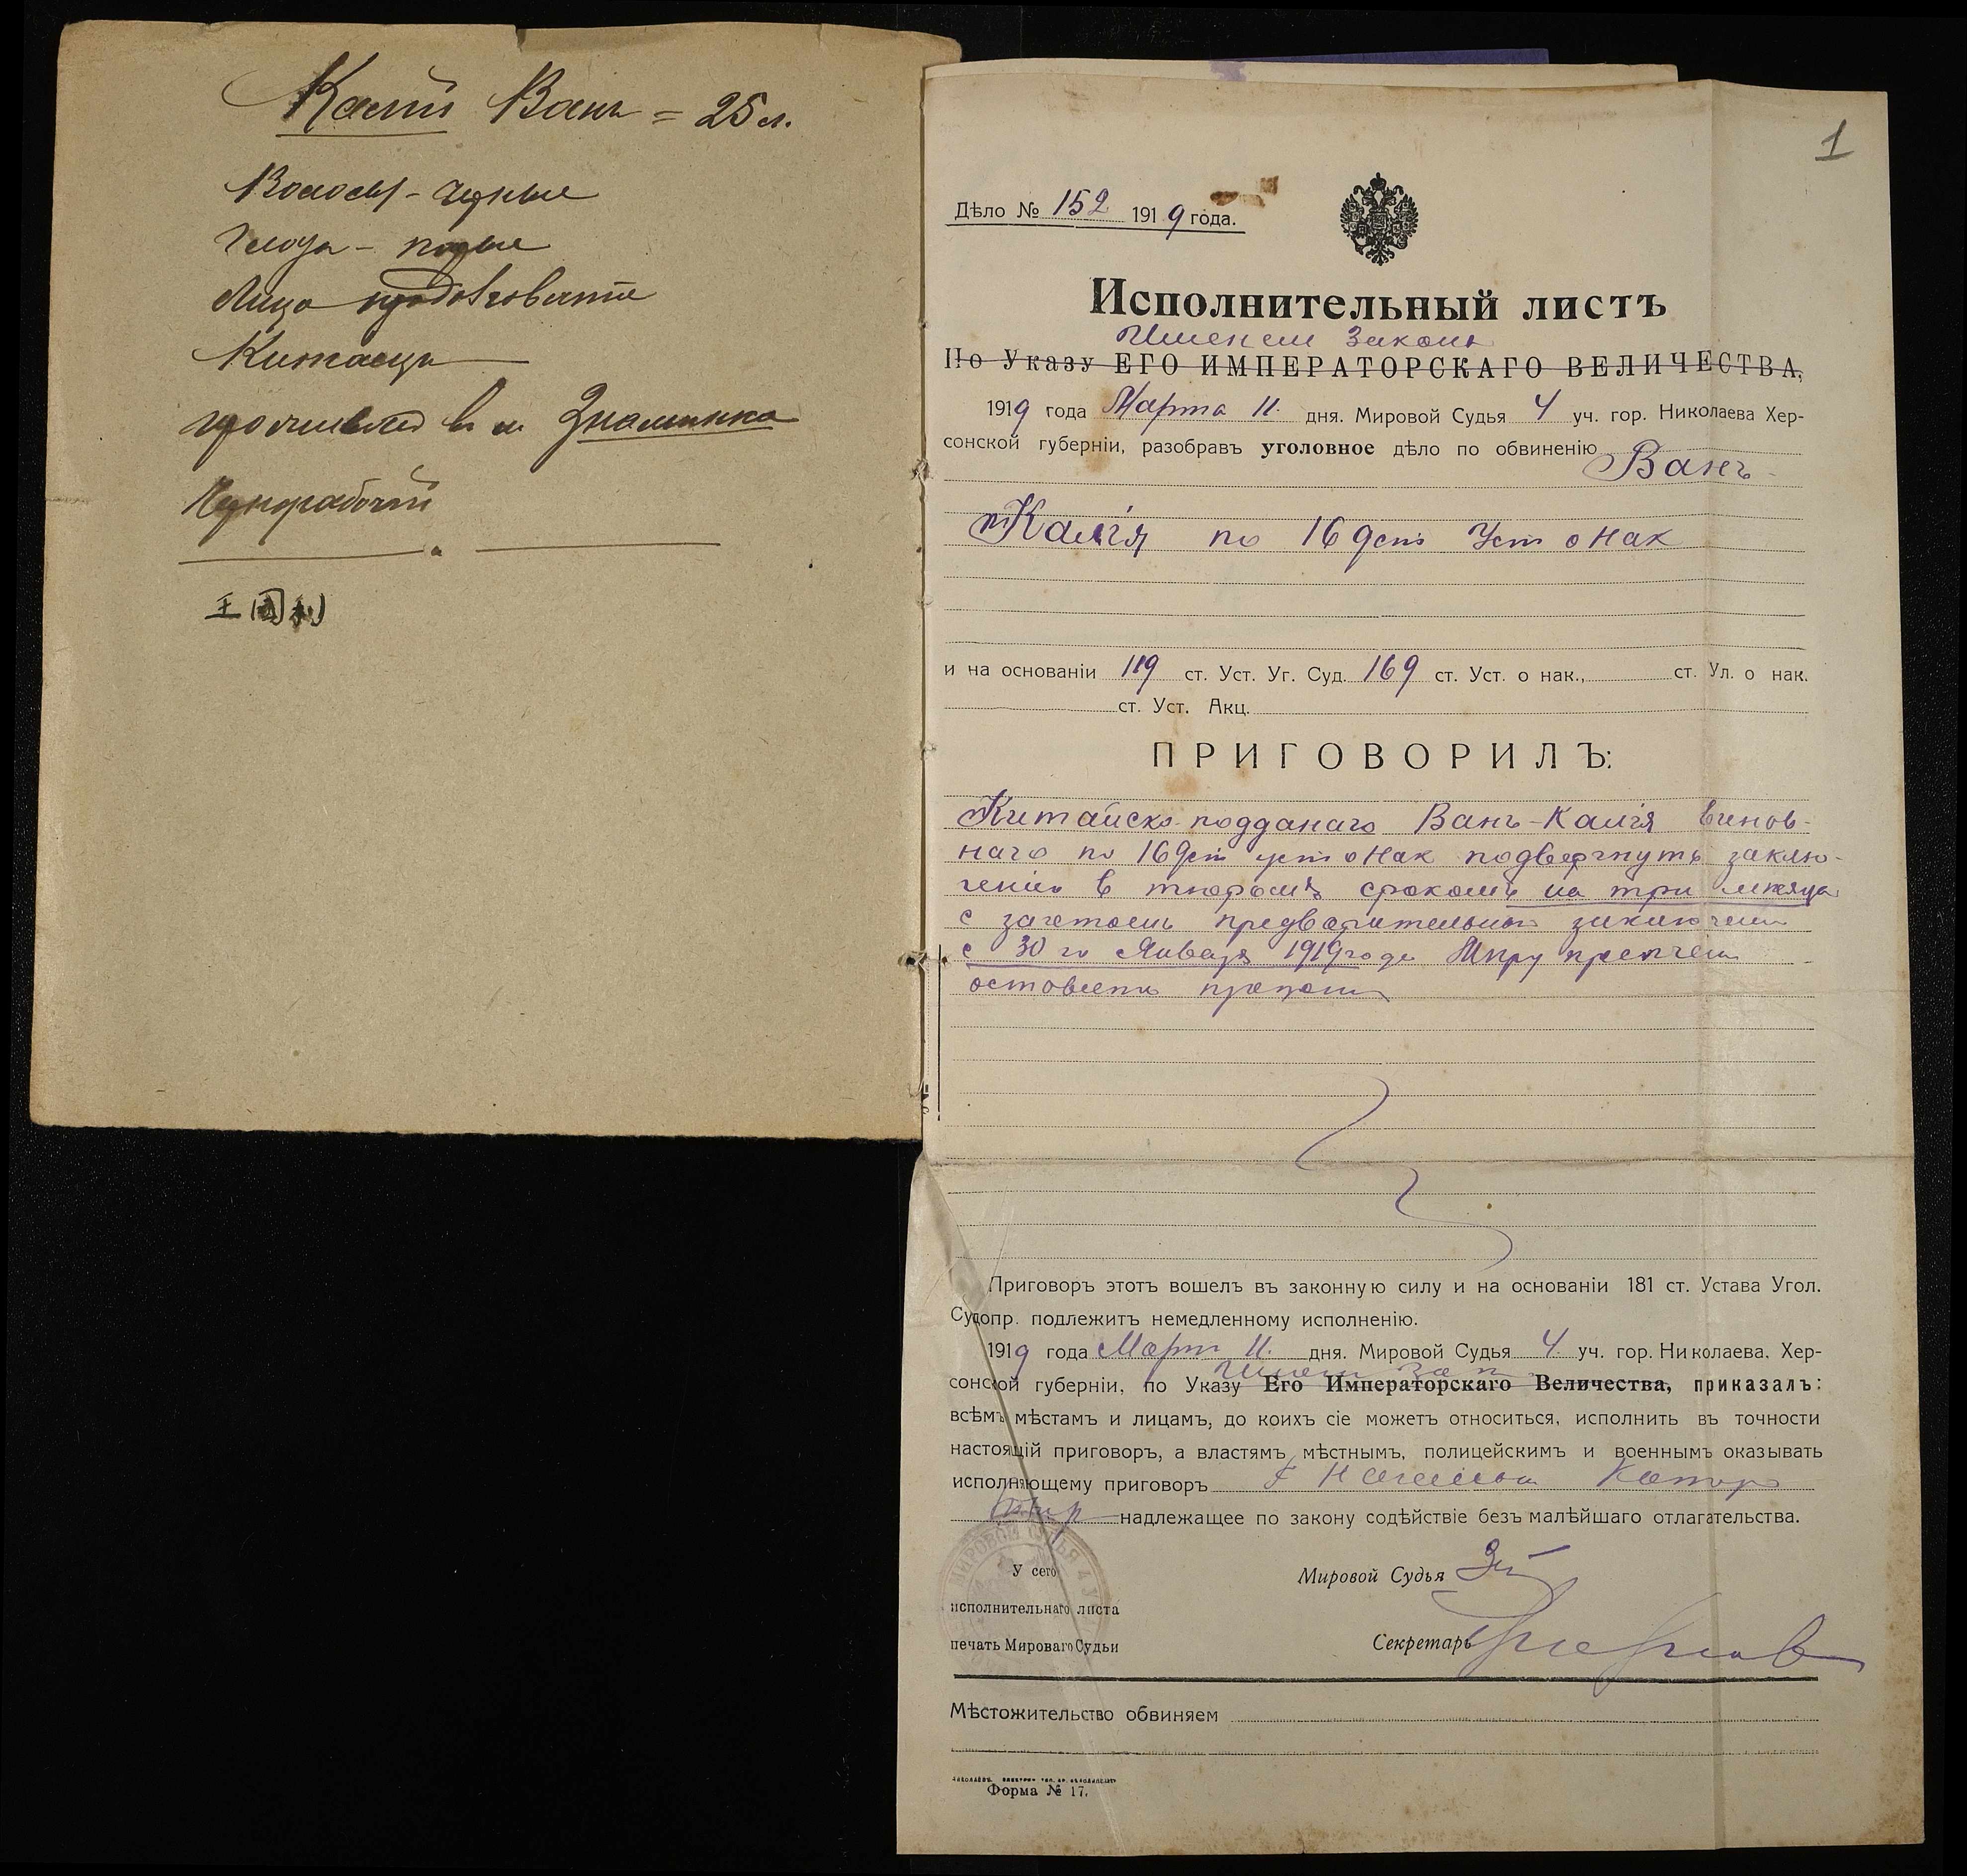 Калій Ванъ = 25 л.
Волосы - черные
Глаза - карые
Лицо продолговатое
Китаецъ
проживал в м Знаменка
Чернорабочій
王國
1
Дѣло № 152 1919 года.
Исполнительный листъ
Именем Закона
По Указу ЕГО ИМПЕРАТОРСКАГО ВЕЛИЧЕСТВА,
1919 года Марта 11. дня. Мировой Судья 4 уч. гор. Николаева Хер-
сонской губерніи, разобравъ уголовное дѣло по обвиненію Ванъ-
Калія по 169 ст Уст о Нак
и на основаніи 119 ст. Уст. Уг. Суд. 169 ст. Уст. о нак., ст. Ул. о нак.
ст. Уст. Акц.
ПРИГОВОРИЛЪ:
Китайско-подданаго Ванъ-Калія винов-
наго по 169 ст уст о Нак подвергнуть заклю-
ченію в тюрьмѣ срокомъ на три месяца
с зачетомъ предварительнаго заключени
с 30 го Января 1919 года Мѣру пресечен
оставить
Приговоръ этотъ вошелъ въ законную силу и на основаніи 181 ст. Устава Угол.
Судопр. подлежитъ немедленному исполненію.
1919 года Март 11. дня. Мировой Судья 4. уч. гор. Николаева, Хер-
Имен Зак
сонской губерніи, по Указу Его Императорскаго Величества, приказалъ:
всѣмъ мѣстамъ и лицамъ, до коихъ сіе можетъ относиться, исполнить въ точности
настоящій приговоръ, а властямъ мѣстнымъ, полицейскимъ и военнымъ оказывать
исполняющему приговоръ Г Начальн
надлежащее по закону содѣйствіе безъ малѣйшаго отлагательства.
МИРОВОЙ СУДЬЯ 4 У
У сего
исполнительнаго листа
печать Мирового Судьи
Мировой Судья
Секретарь
Мѣстожительство обвиняем
Форма № 17.